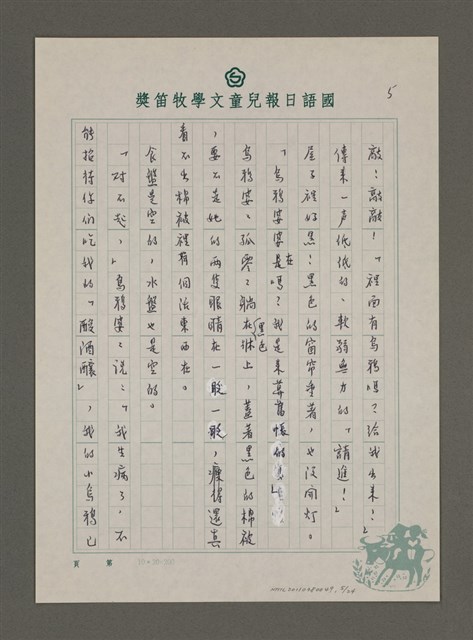 國語日報兒童文學牧笛獎
5
敲！敲敲！「裡面有烏鴉嗎？給我出來！」
傳來一声低低的、軟弱無力的「請進！」
屋子裡好黑！黑色的窗帘垂著，也沒開灯。
「烏鴉婆婆在是嗎？我是來募舊帳的
烏鴉婆婆孤零零躺在黑色床上，蓋著黑色的棉被
，要不是她的兩隻眼睛在一眨一眨，瘦得還真
看不出棉被裡有個活東西在。
食盤是空的，水盤也是空的。
「对不起，」烏鴉婆婆說：「我生病了，不
能招待你們吃我的『酸酒釀』，我的小烏鴉已
第 頁